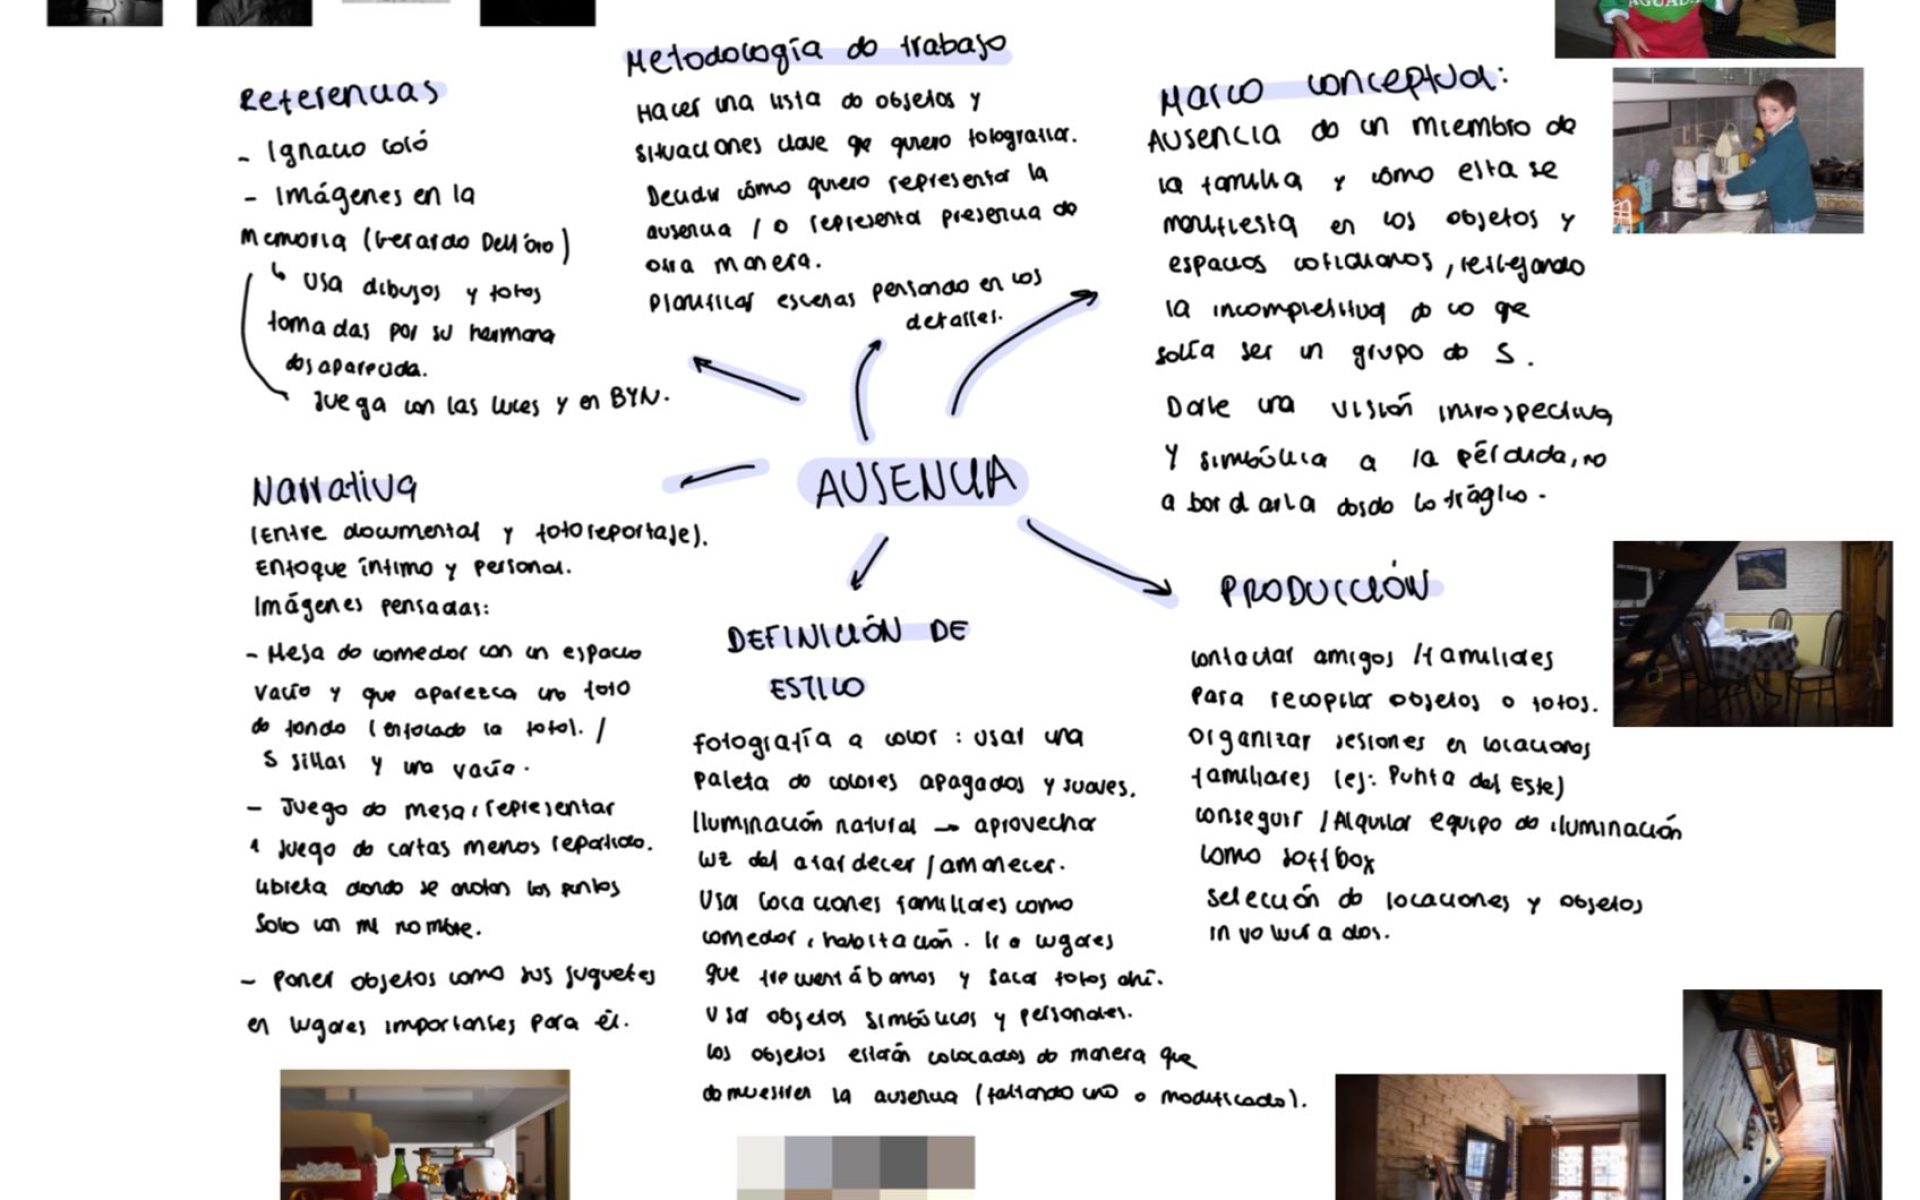 AGUADA
Referencias
- Ignacio Coló
- Imágenes en la
Memoria (Gerardo Dell'oro)
↳ Usa dibujos y fotos
tomadas por su hermana
desaparecida.
Juega con las luces y en BYN.
Metodología de trabajo
Hacer una lista de objetos y
situaciones clave que quiero fotografiar.
Decidir cómo quiero representar la
ausencia / o representar presencia de
otra manera.
Planificar escenas pensando en los
detalles.
Marco conceptual:
Ausencia de un miembro de
la familia y cómo esta se
manifiesta en los objetos y
espacios cotidianos, reflejando
la incompletitud de lo que
solía ser un grupo de 5.
Darle una visión introspectiva
y simbólica a la pérdida, no
abordarla desde lo trágico.
AUSENCIA
Narrativa
(Entre documental y fotoreportaje).
Enfoque íntimo y personal.
Imágenes pensadas:
- Mesa de comedor con un espacio
vacío y que aparezca una foto
de fondo (enfocado la foto). /
5 sillas y una vacía.
- Juego de mesa, representar
1 juego de cartas menos repartido.
libreta donde se anotan los puntos
solo con mi nombre.
- Poner objetos como sus juguetes
en lugares importantes para él.
DEFINICIÓN DE
ESTILO
Fotografía a color: usar una
paleta de colores apagados y suaves.
Iluminación natural → aprovechar
luz del atardecer / amanecer.
Usar locaciones familiares como
comedor, habitación. Ir a lugares
que frecuentábamos y sacar fotos ahí.
Usar objetos simbólicos y personales.
Los objetos estarán colocados de manera que
demuestren la ausencia (faltando uno o modificado).
PRODUCCIÓN
Contactar amigos / familiares
para recopilar objetos o fotos.
Organizar sesiones en locaciones
familiares (ej: Punta del Este)
Conseguir / Alquilar equipo de iluminación
como softbox
Selección de locaciones y objetos
involucrados.